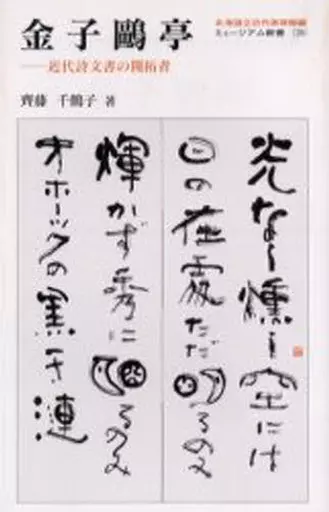 金子鷗亭
——近代詩文書の開拓者
齊藤 千鶴子 著
北海道立近代美術館編
ミュージアム新書
光なく燻し空には
日の在處ただ明るのみ
輝かず秀に明るのみ
オホーツクの黒き漣